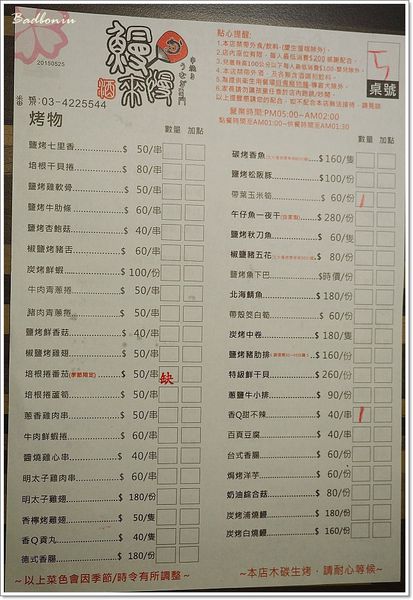 Badbonin
20150525
鰻來慢
酒
貼心提醒:
1.本店禁帶外食/飲料(慶生蛋糕除外)。
桌號
5
番號:03-4225544
營業時間:PM05:00~AM02:00
點餐時間至AM01:00~供餐時間至AM01:30
烤物
數量 加點
數量 加點
鹽烤七里香 $ 50/串
培根干貝捲 $ 80/串
鹽烤雞軟骨 $ 50/串
鹽烤牛肋條 $ 60/串
鹽烤杏鮑菇 $ 40/串
椒鹽烤豬舌 $ 60/串
炭烤鮮蝦 $ 100/份
牛肉青蔥捲 $ 50/串
豬肉青蔥捲 $ 50/串
鹽烤鮮香菇 $ 40/串
椒鹽烤雞翅 $ 50/串
培根捲番茄(季節限定) $ 50/串 缺
培根捲蘆筍 $ 50/串
蔥香雞肉串 $ 50/串
牛肉鮮蝦捲 $ 60/串
醬燒雞心串 $ 40/串
明太子雞肉串 $ 60/串
明太子雞翅 $ 180/份
香檸烤雞翅 $ 50/隻
香Q貢丸 $ 40/串
德式香腸 $ 180/份
碳烤香魚 $ 160/隻
鹽烤松阪豚 $ 100/份
帶葉玉米筍 $ 60/份 1
午仔魚一夜干 $ 280/份
鹽烤秋刀魚 $ 60/隻
椒鹽豬五花 $ 80/份
鹽烤魚下巴 $時價/份
北海鯖魚 $ 180/份
帶殼茭白筍 $ 60/份
炭烤中卷 $ 180/隻
鹽烤豬肋排 $ 160/份
特級鮮干貝 $ 260/份
蔥鹽牛小排 $ 90/份
香Q甜不辣 $ 40/串 1
百頁豆腐 $ 40/串
台式香腸 $ 60/份
焗烤洋芋 $ 60/份
奶油綜合菇 $ 80/份
炭烤蒲燒鰻 $ 180/份
炭烤白燒鰻 $ 160/份
~以上菜色會因季節/時令有所調整~
~本店木碳生烤,請耐心等候~